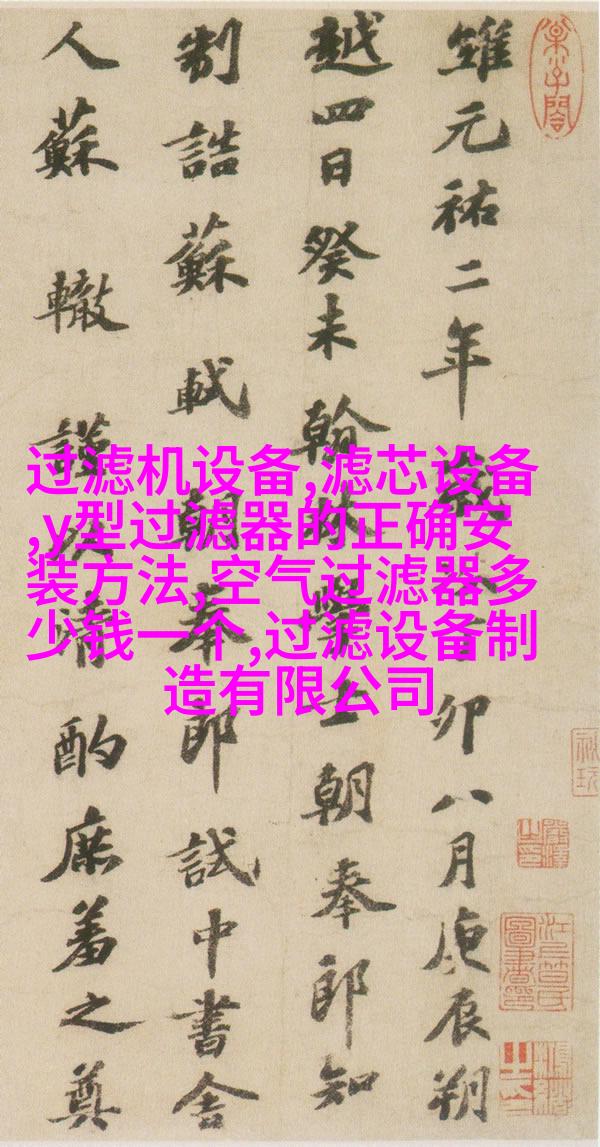 維元祐二年歲卯八月庚辰朔
越四日癸未翰林學士朝奉郎知
制誥蘇軾朝奉郎試中書舍
人蘇轍謹以清酌庶羞之奠
过滤机设备,滤芯设备
,y型过滤器的正确安
装方法,空气过滤器多
少钱一个,过滤设备制
造有限公司
江上笪氏
圖書印